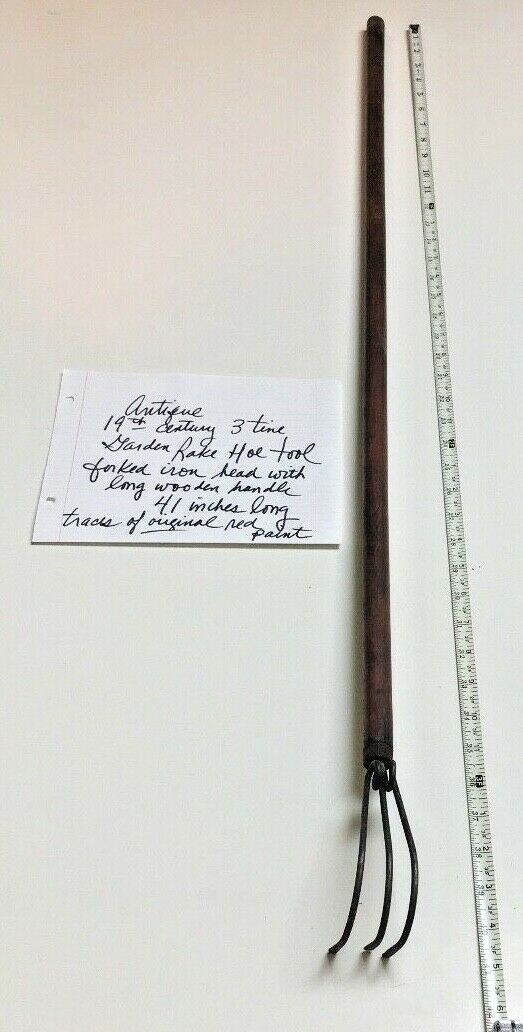 Antique
19th Century 3 tine
Garden Rake Hoe tool
forked iron head with
long wooden handle
41 inches long
traces of original red
paint